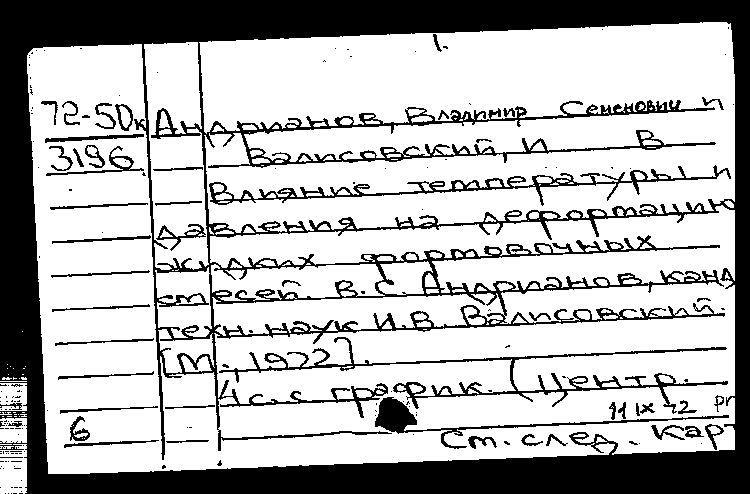 1.
72-50к Андрианов, Владимир Семенович и
3196 Валисовский, И В
Влияние температуры и
давления на деформацию
жидких формовочных
смесей. В.С. Андрианов, канд
техн. наук И.В. Валисовский.
[М., 1972].
4 с. с график. (Центр.
11 IX 72
6 См. след. карт